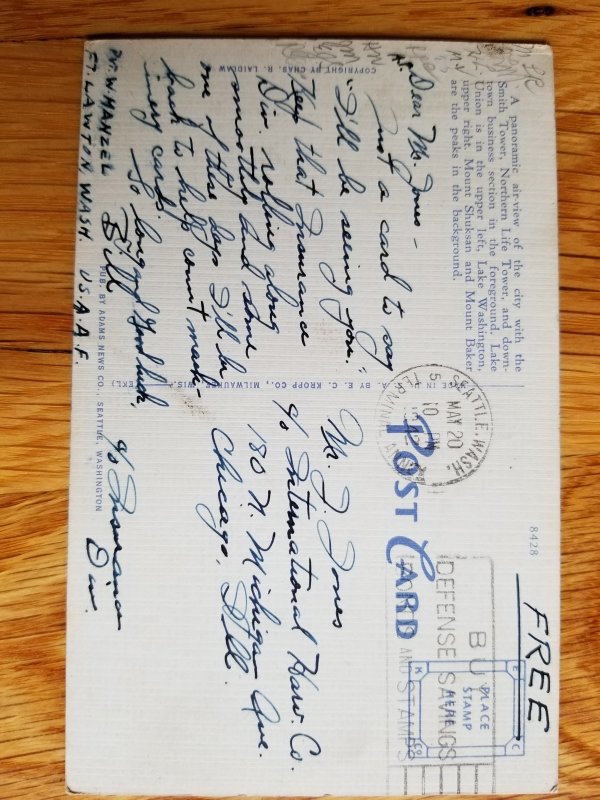 A panoramic air-view of the city with the
Smith Tower, Northern Life Tower, and down-
town business section in the foreground. Lake
Union is in the upper left, Lake Washington,
upper right. Mount Shuksan and Mount Baker
are the peaks in the background.
COPYRIGHT BY CHAS. R. LAIDLAW
Dear Mr. Jones -
Just a card to say
"I'll be seeing you".
Keep that Insurance
Div rolling along
smoothly and some
one of these days I'll be
back to help count mach-
inery cards.
So long and Good luck,
Bill
PVT. W. HANZEL
FT. LAWTON WASH. U.S.A.A.F.
PUB. BY ADAMS NEWS CO., SEATTLE, WASHINGTON
MADE IN U.S.A. BY E. C. KROPP CO., MILWAUKEE, WIS. (EKL)
8428
FREE
POST CARD
SEATTLE, WASH.
MAY 20
10 PM
BUY
DEFENSE SAVINGS
BONDS AND STAMPS
PLACE
STAMP
HERE
E
C
K
CO
Mr. J. Jones
c/o International Harv. Co.
180 N. Michigan Ave.
Chicago, Ill.
c/o Insurance
Div.